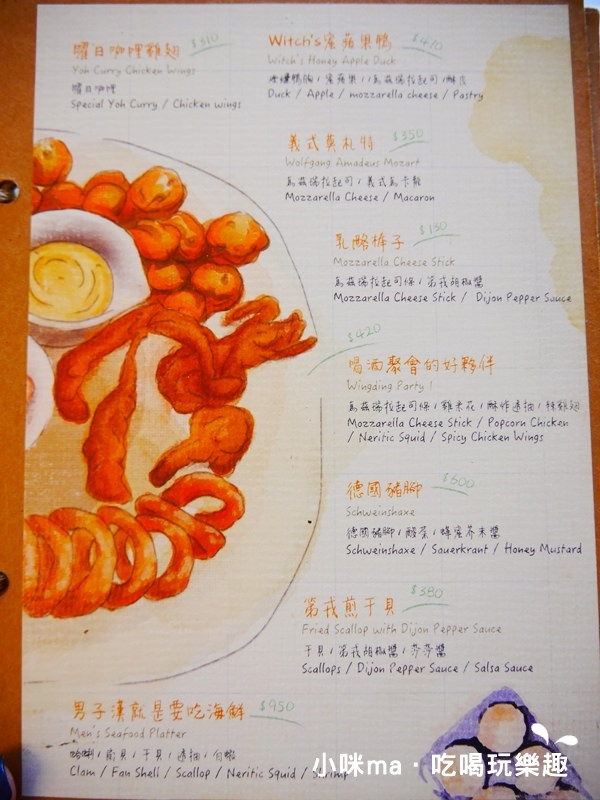 曜日咖哩雞翅 $310
Yoh Curry Chicken Wings
曜日咖哩
Special Yoh Curry / Chicken wings
Witch's蜜蘋果鴨 $470
Witch's Honey Apple Duck
鴨胸 / 蜜蘋果 / 馬茲瑞拉起司 / 酥皮
Duck / Apple / mozzarella cheese / Pastry
義式莫札特 $350
Wolfgang Amadeus Mozart
馬茲瑞拉起司 / 義式馬卡龍
Mozzarella Cheese / Macaron
乳酪棒子 $130
Mozzarella Cheese Stick
馬茲瑞拉起司條 / 第戎胡椒醬
Mozzarella Cheese Stick / Dijon Pepper Sauce
$420
喝酒聚會的好夥伴
Wingding Party !
馬茲瑞拉起司條 / 雞米花 / 酥炸透抽 / 辣雞翅
Mozzarella Cheese Stick / Popcorn Chicken
/ Neritic Squid / Spicy Chicken Wings
德國豬腳 $600
Schweinshaxe
德國豬腳 / 酸菜 / 蜂蜜芥末醬
Schweinshaxe / Sauerkrant / Honey Mustard
第戎煎干貝 $380
Fried Scallop with Dijon Pepper Sauce
干貝 / 第戎胡椒醬 / 莎莎醬
Scallops / Dijon Pepper Sauce / Salsa Sauce
男子漢就是要吃海鮮 $950
Men's Seafood Platter
蛤蜊 / 扇貝 / 干貝 / 透抽 / 白蝦
Clam / Fan Shell / Scallop / Neritic Squid / Shrimp
小咪ma·吃喝玩樂趣